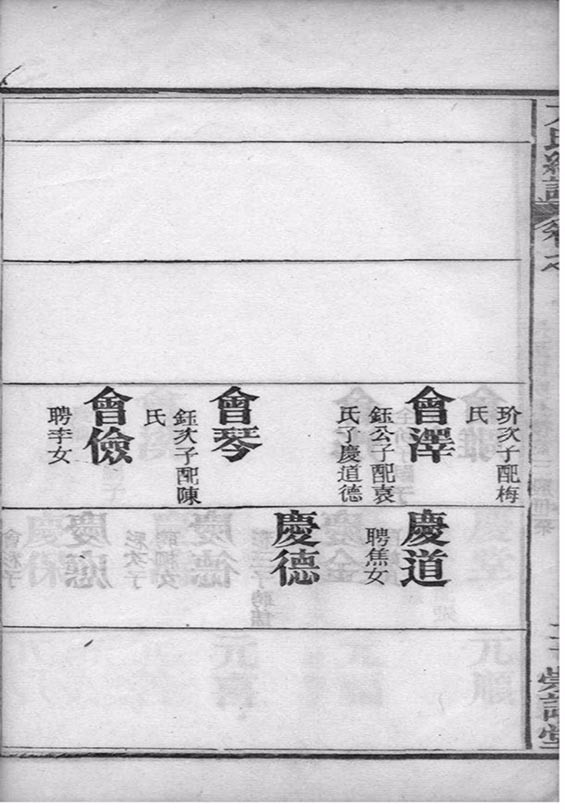 玠次子配梅
氏
會澤
鈺公子配袁
氏子慶道德
會琴
鈺次子配陳
氏
會儉
聘李女
慶道
聘焦女
慶德